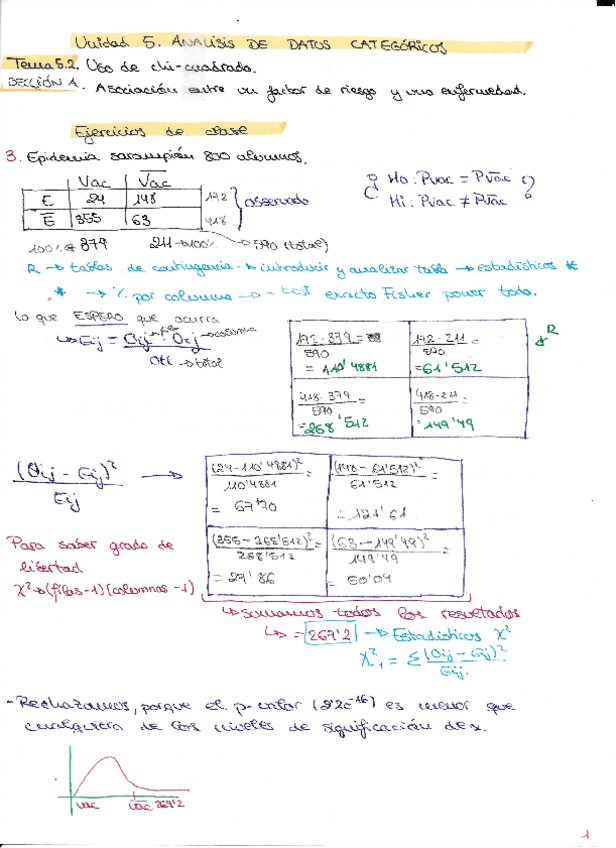 Unidad 5. ANÁLISIS DE DATOS CATEGÓRICOS
Tema 5.2. Uso de chi-cuadrado.
SECCIÓN A. Asociación entre un factor de riesgo y una enfermedad.
Ejercicios de clase
3. Epidemia sarampión 800 alumnos.
¿ Ho: Pvac = Pv̅a̅c̅ ?
H1: Pvac ≠ Pv̅a̅c̅
Vac V̅a̅c̅
E 24 148 172
E̅ 355 63 418
observado
100% ← 379 211 → 100% → 590 (total)
R → tablas de contingencia → introducir y analizar tabla → estadísticos *
* → % por columna → - test exacto Fisher poner todo.
Lo que ESPERO que ocurra
↳ Eij = Oij · Oij / Ott
→ fila → columna → total
172·379/590 = 110'4881
172·211/590 = 61'512
418·379/590 = 268'512
418·211/590 = 149'49
R
(Oij - Eij)² / Eij →
(24-110'4881)² / 110'4881 = 67'70
(148-61'512)² / 61'512 = 121'61
(355-268'512)² / 268'512 = 27'86
(63-149'49)² / 149'49 = 50'04
Para saber grado de
libertad
X² → (filas-1)(columnas-1)
↳ sumamos todos los resultados
↳ = 267'2 → Estadísticos X²
X²₁ = Σ (Oij - Eij)² / Eij.
- Rechazamos, porque el p-valor (2'2e⁻¹⁶) es menor que
cualquiera de los niveles de significación de α.
vac v̅a̅c̅ 267'2
1